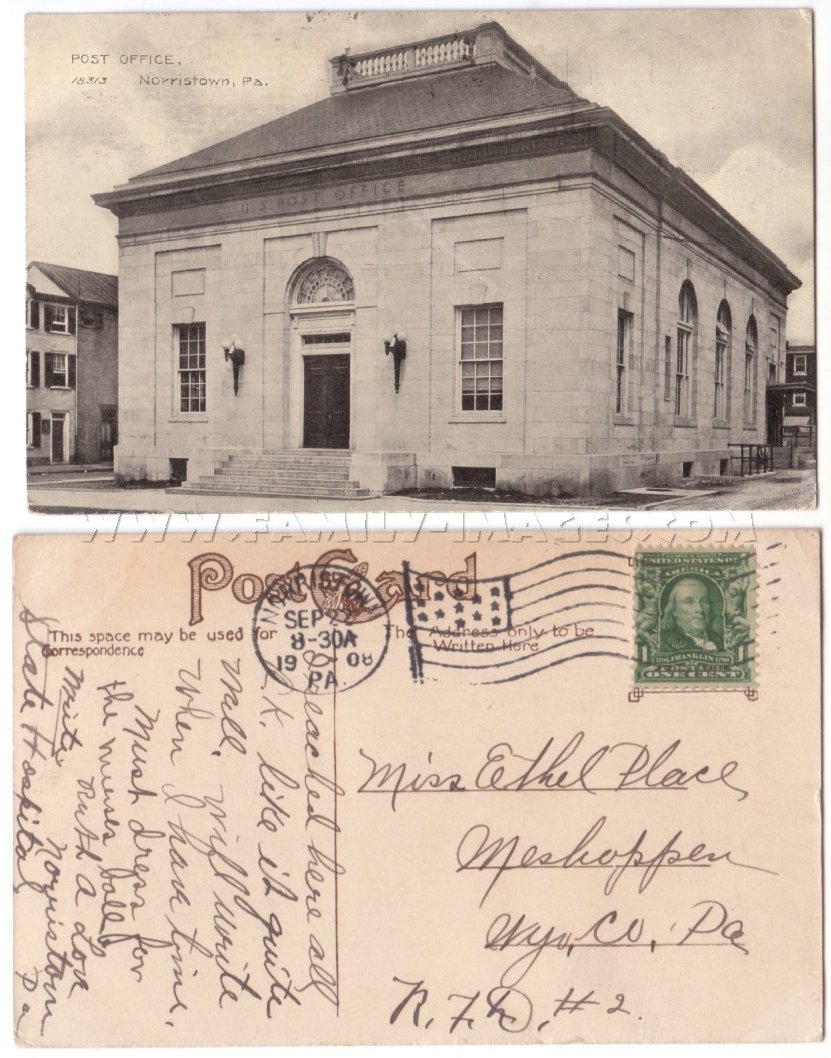 POST OFFICE,
18313 Norristown, Pa.
U.S. POST OFFICE
WWW.FAMILY-IMAGES.COM
Post Card
This space may be used for
Correspondence
The Address only to be
Written Here
NORRISTOWN
SEP 22
8-30A
19 08
PA.
UNITED STATES OF
AMERICA
1 FRANKLIN 1
POSTAGE
ONE CENT
I reached here all
O.K. like it quite
well. Will write
when I have time.
Must dress for
the nurses ball
Write
Ruth A Love
Norristown
State Hospital Pa
Miss Ethel Place
Meshoppen
Wyo, Co, Pa
R.F.D. #2.